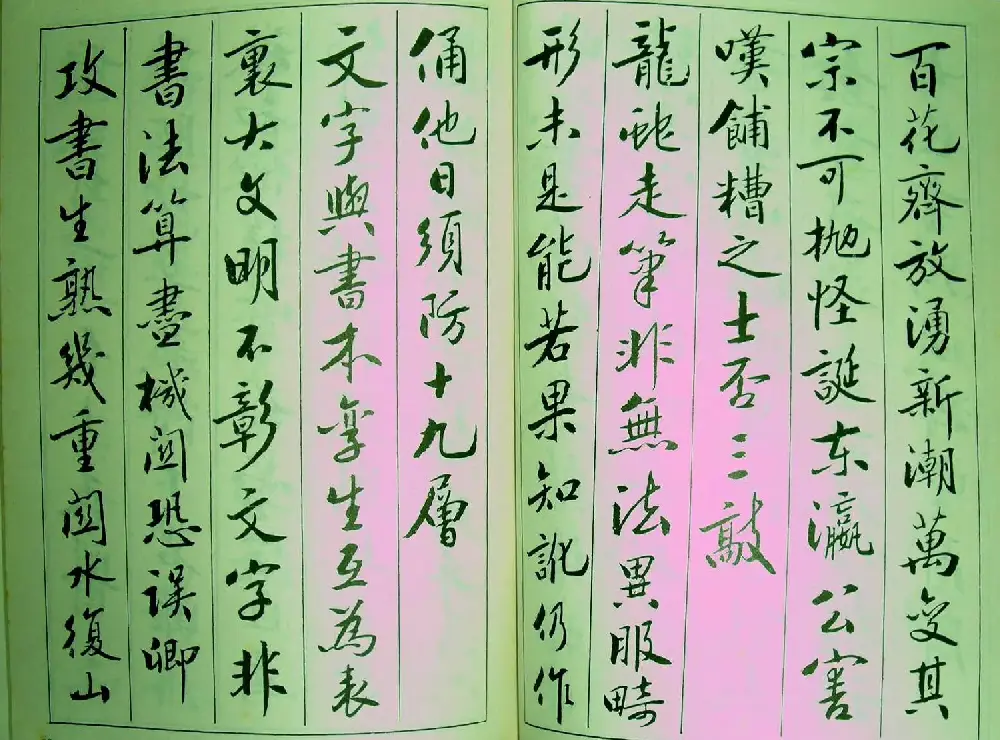 百花齊放湧新潮萬变其
宗不可抛怪誕东瀛公害
嘆餔糟之士否三敲
龍蛇走筆非無法異服畸
形未是能若果知訛仍作
俑他日須防十九層
文字與書本孪生互為表
裏大文明不彰文字非
書法算盡機関恐误卿
攻書生熟幾重関水復山